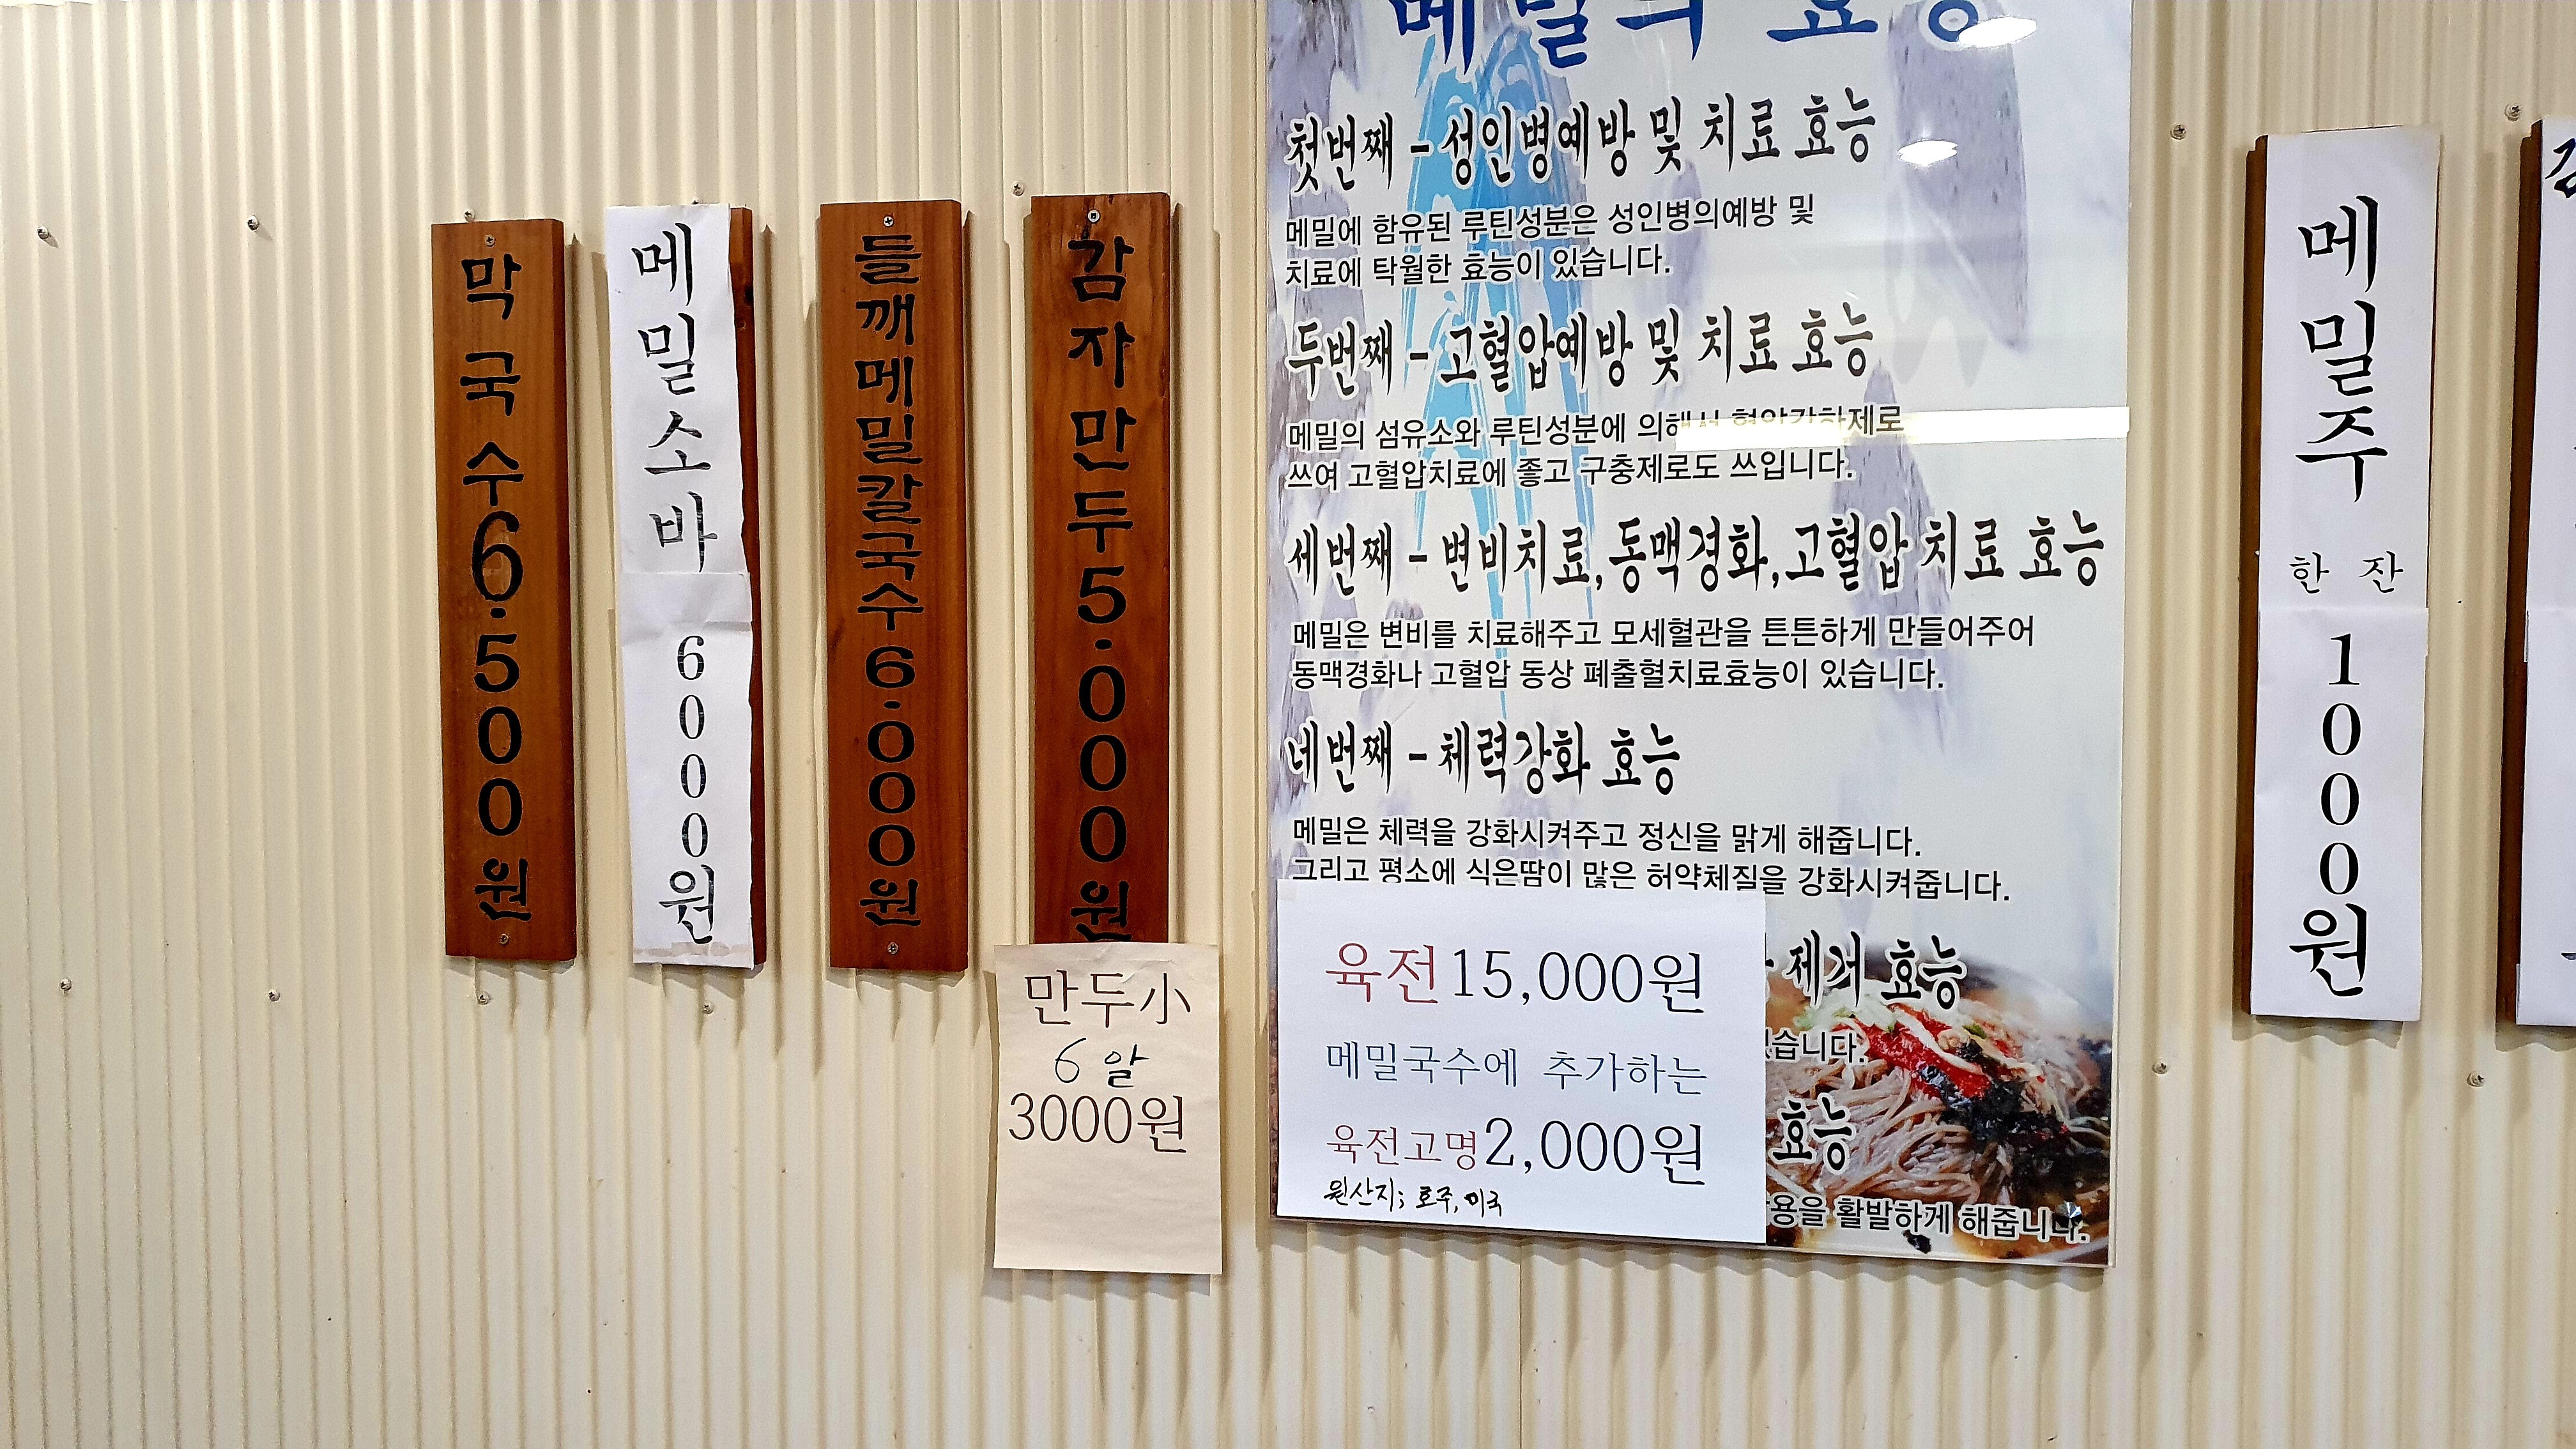 막국수6.500원
메밀소바 6000원
들깨메밀칼국수6.000원
감자만두5.000원
만두小
6알
3000원
메밀의 효능
첫번째 - 성인병예방 및 치료 효능
메밀에 함유된 루틴성분은 성인병의예방 및
치료에 탁월한 효능이 있습니다.
두번째 - 고혈압예방 및 치료 효능
메밀의 섬유소와 루틴성분에 의해서 혈압강하제로
쓰여 고혈압치료에 좋고 구충제로도 쓰입니다.
세번째 - 변비치료,동맥경화,고혈압 치료 효능
메밀은 변비를 치료해주고 모세혈관을 튼튼하게 만들어주어
동맥경화나 고혈압 동상 폐출혈치료효능이 있습니다.
네번째 - 체력강화 효능
메밀은 체력을 강화시켜주고 정신을 맑게 해줍니다.
그리고 평소에 식은땀이 많은 허약체질을 강화시켜줍니다.
제거 효능
습니다.
효능
용을 활발하게 해줍니다.
육전15,000원
메밀국수에 추가하는
육전고명2,000원
원산지; 호주, 미국
메밀주
한 잔
1000원